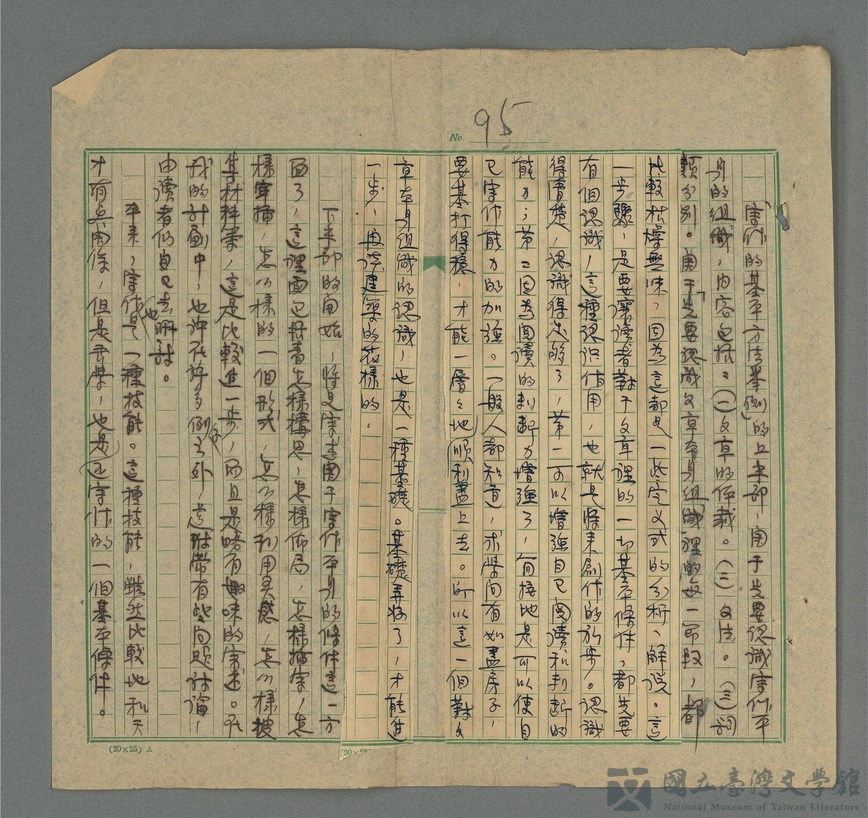 No 95
寫作的基本方法舉例的上半部，關于先要認識寫作本
身的組織，內容包括：（一）文章的体裁。（二）文法。（三）詞
類分別。關于先要認識文章本身組織裡的每一部份，都
比較枯燥無味，因為這都是一些定义式的分析、解說。這
一步驟，是要讓讀者對于文章裡的一切基本條件，都先要
有個認識，這種認识作用，也就是將來創作的初步。認識
得清楚，認識得足夠了，第一可以增強自己閱讀和判斷的
能力；第二因為閱讀的判斷力增強了，間接地是可以使自
己寫作能力的加強。一般人都知道，求學问有如蓋房子，
要基打得穩，才能一層々地順利蓋上去。所以這一個對文
章本身組織的認識，也是一種基礎。基礎弄好了，才能進
一步，再談建築的花樣的。
下半部的開始，將是寫述關于寫作本身的條件這一方
面了，這裡面包括着怎樣構思，怎樣佈局，怎樣描寫，怎
樣穿插，怎么樣的一個形式，怎么樣利用灵感，怎么樣搜
集材料等，這是比較進一步，而且是略有趣味的寫述。在
我的計劃中，也許在許多例文之外，還附帶有些问題討論，
由讀者们自己去研討。
本來，寫作也是一種技能。這種技能，雖然比較地和天
才有點関係，但是求學，也是正寫作的一個基本條件。
(20×25) A
(20×2
國立臺灣文學館
National Museum of Taiwan Literature